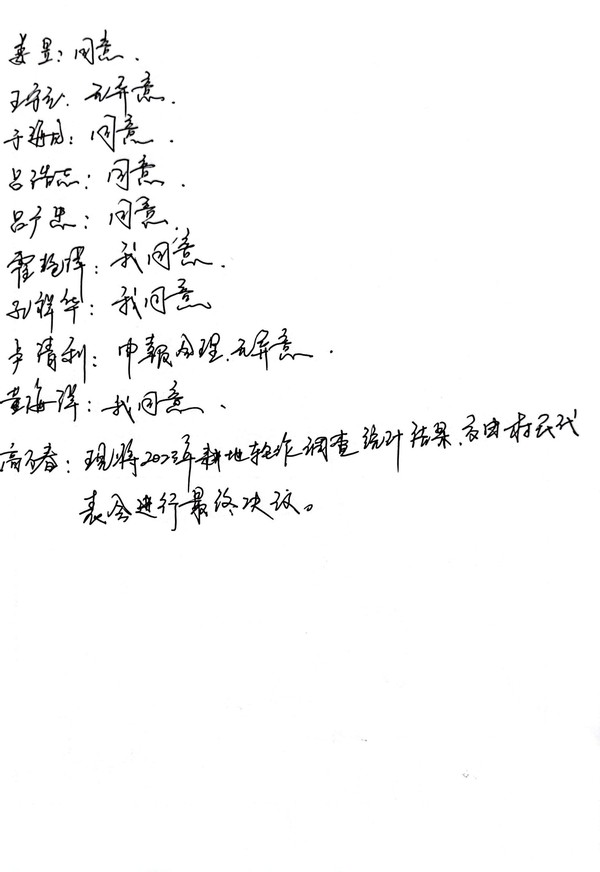 姜昱：同意.
王守元. 无异意.
于海成：同意.
吕浩志：同意.
吕广忠：同意.
霍艳辉：我同意.
孔祥华：我同意
卢清利：申報合理.无异意.
黄海洋：我同意、
高万春：现将2023年耕地轮作调查统计结果.交由村民代
表会进行最终决议。